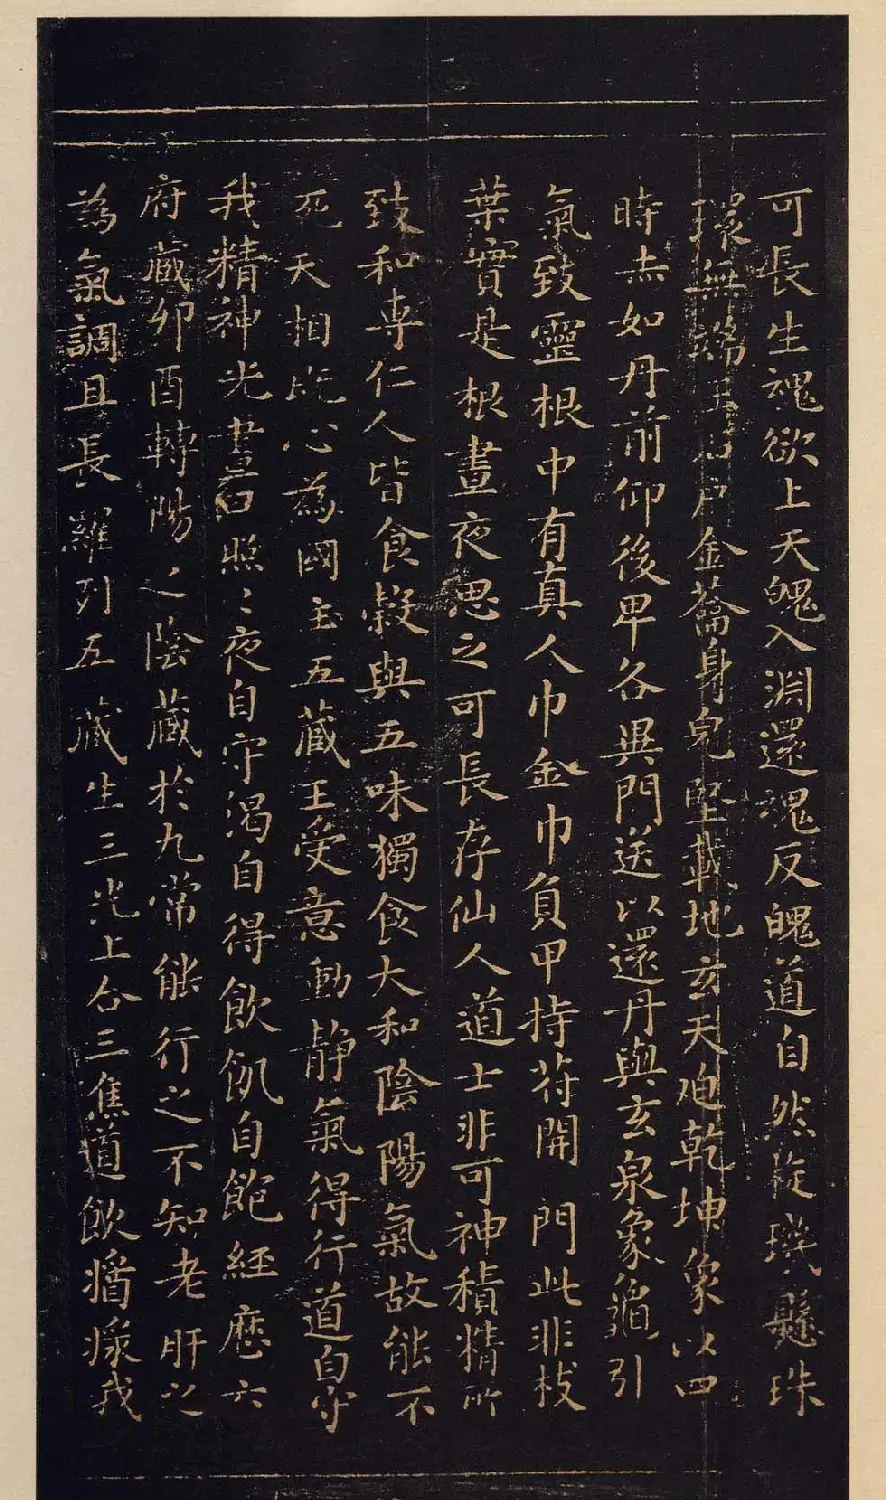 可長生魂欲上天魄入淵還魂反魄道自然旋璣懸珠
環無端玉石戶金籥身皃堅載地玄天迫乾坤象以四
時赤如丹前仰後卑各異門送以還丹與玄泉象龜引
氣致靈根中有真人巾金巾負甲持苻開門此非枝
葉實是根晝夜思之可長存仙人道士非可神積精所
致和專仁人皆食穀與五味獨食大和陰陽氣故能不
死天相既心為國主五藏王受意動靜氣得行道自守
我精神光晝日照〻夜自守渴自得飲飢自飽經歷六
府藏卯酉轉陽之陰藏於九常能行之不知老肝之
為氣調且長羅列五藏生三光上合三焦道飲漿我